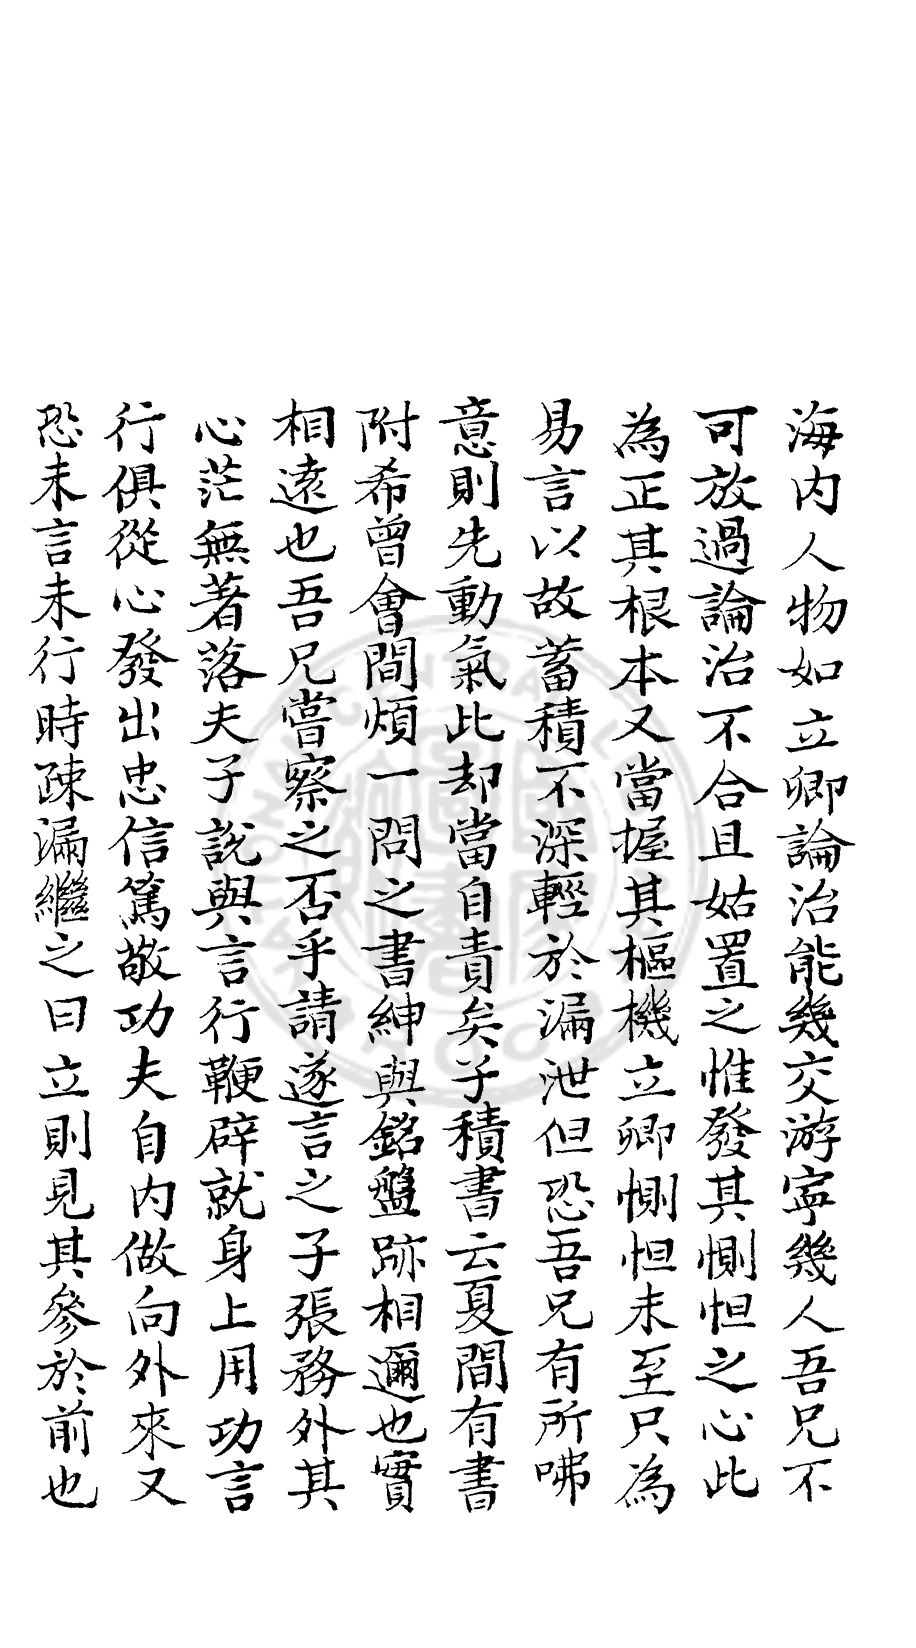 海内人物如立卿論治能幾交游寧幾人吾兄不
可放過論治不合且姑置之惟發其惻怛之心此
為正其根本又當握其樞機立卿惻怛未至只為
易言以故蓄積不深輕於漏泄但恐吾兄有所咈
意則先動氣此却當自責矣子積書云夏間有書
附希曾會間煩一問之書紳與銘盤跡相邇也實
相遠也吾兄嘗察之否乎請遂言之子張務外其
心茫無著落夫子說與言行鞭辟就身上用功言
行俱從心發出忠信篤敬功夫自内做向外來又
恐未言未行時疎漏繼之曰立則見其參於前也